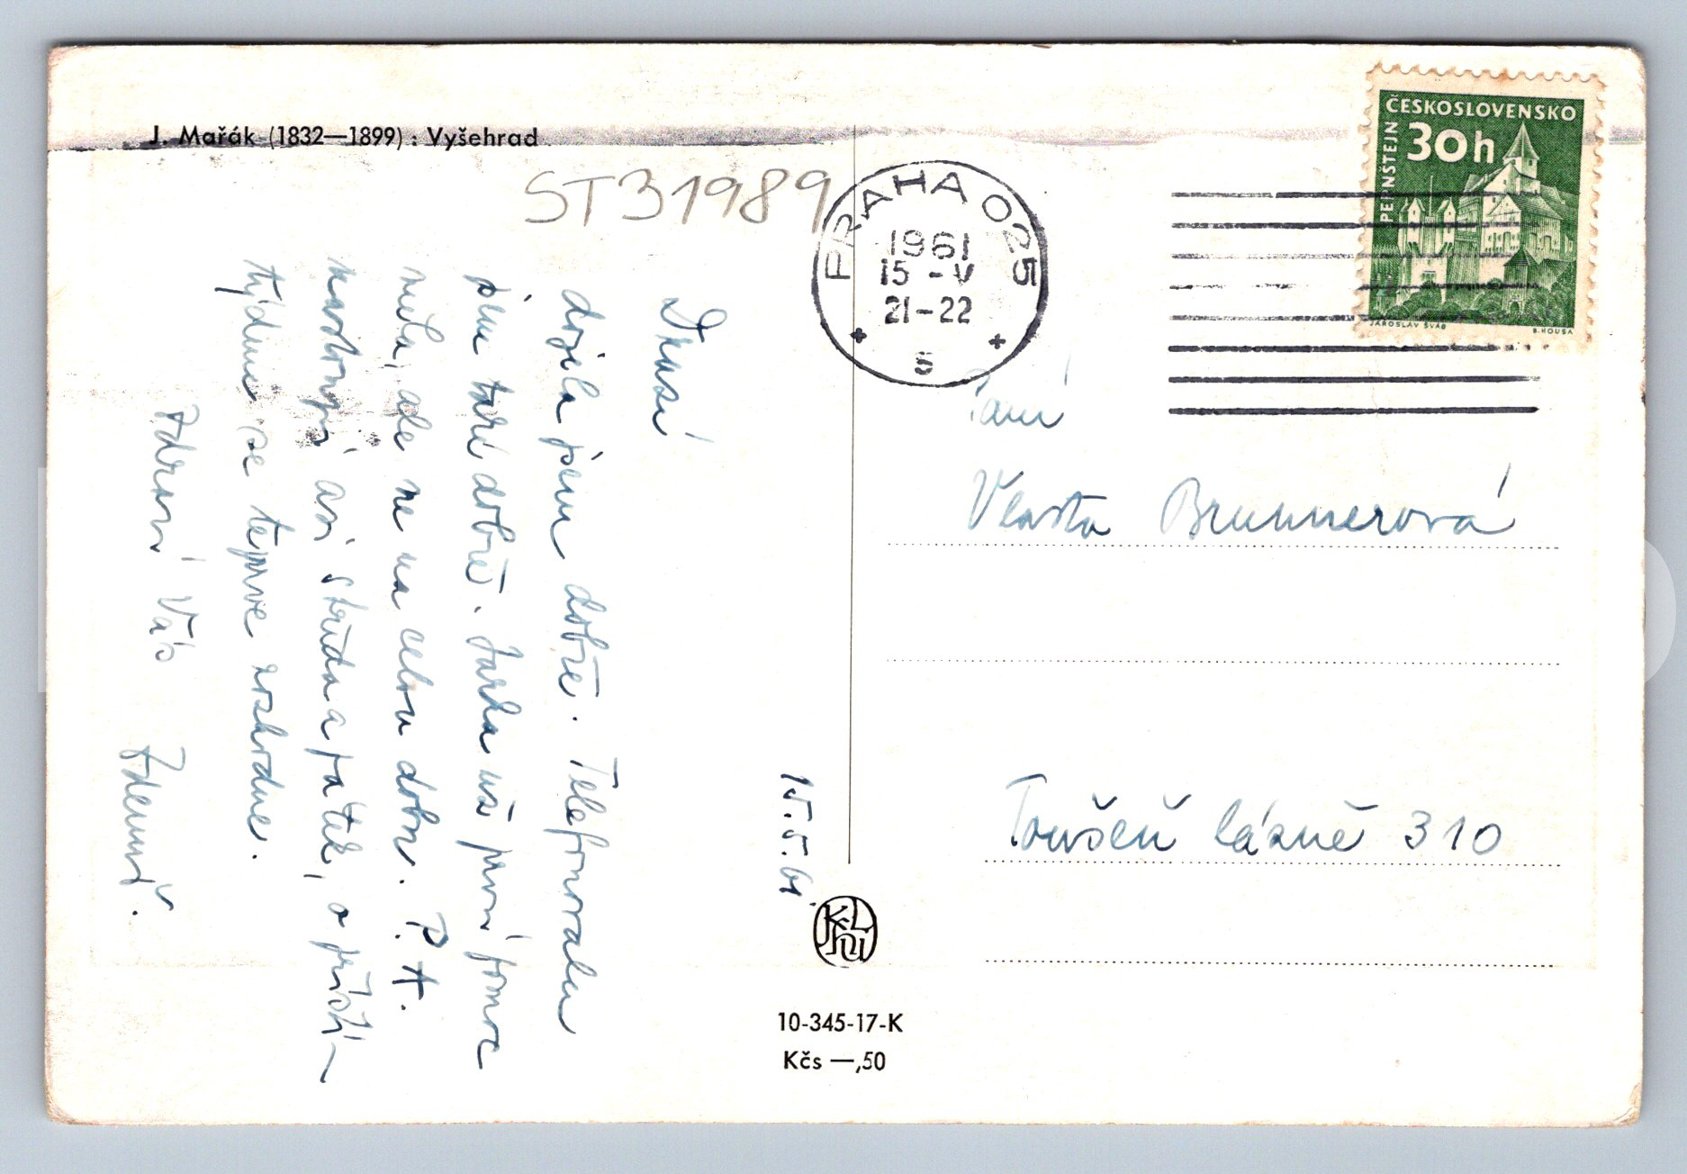 J. Mařák (1832—1899) : Vyšehrad
ST31989
PRAHA 025
1961
15 -V
21-22
s
ČESKOSLOVENSKO
30h
PERNŠTEJN
JAROSLAV ŠVÁB
B. HOUSA
Paní
Vlasta Brunnerová
Toušeň lázně 310
15.5.61.
Drazí
dojela jsem dobře. Telefonovala
jsem také dobře. Jarka už první pomoc
měla, ale ne na celou dobu. P. A.
asi středa a pátek, a příští
týden se teprve rozhodne.
Zdraví Vás
10-345-17-K
Kčs —,50